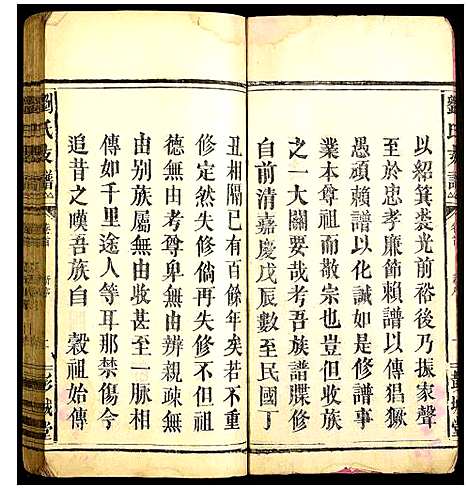 以紹箕裘光前裕後乃振家聲
至於忠孝廉節賴譜以傳倡獗
愚頑賴譜以化誠如是譜之為
業本尊祖而散宗也豈但收族
之一大關要哉考吾族譜牒修
自前清嘉慶戊辰數至民國丁
丑相隔已有百餘年矣若不重
修定然失修倘再失修不但祖
德無由考尊卑無由辨親疎無
由別族屬無由收甚至一脈相
傳如千里途人等耳那禁傷今
追昔之嘆吾族自 穀祖始傳
劉氏支譜
卷首
彭城堂